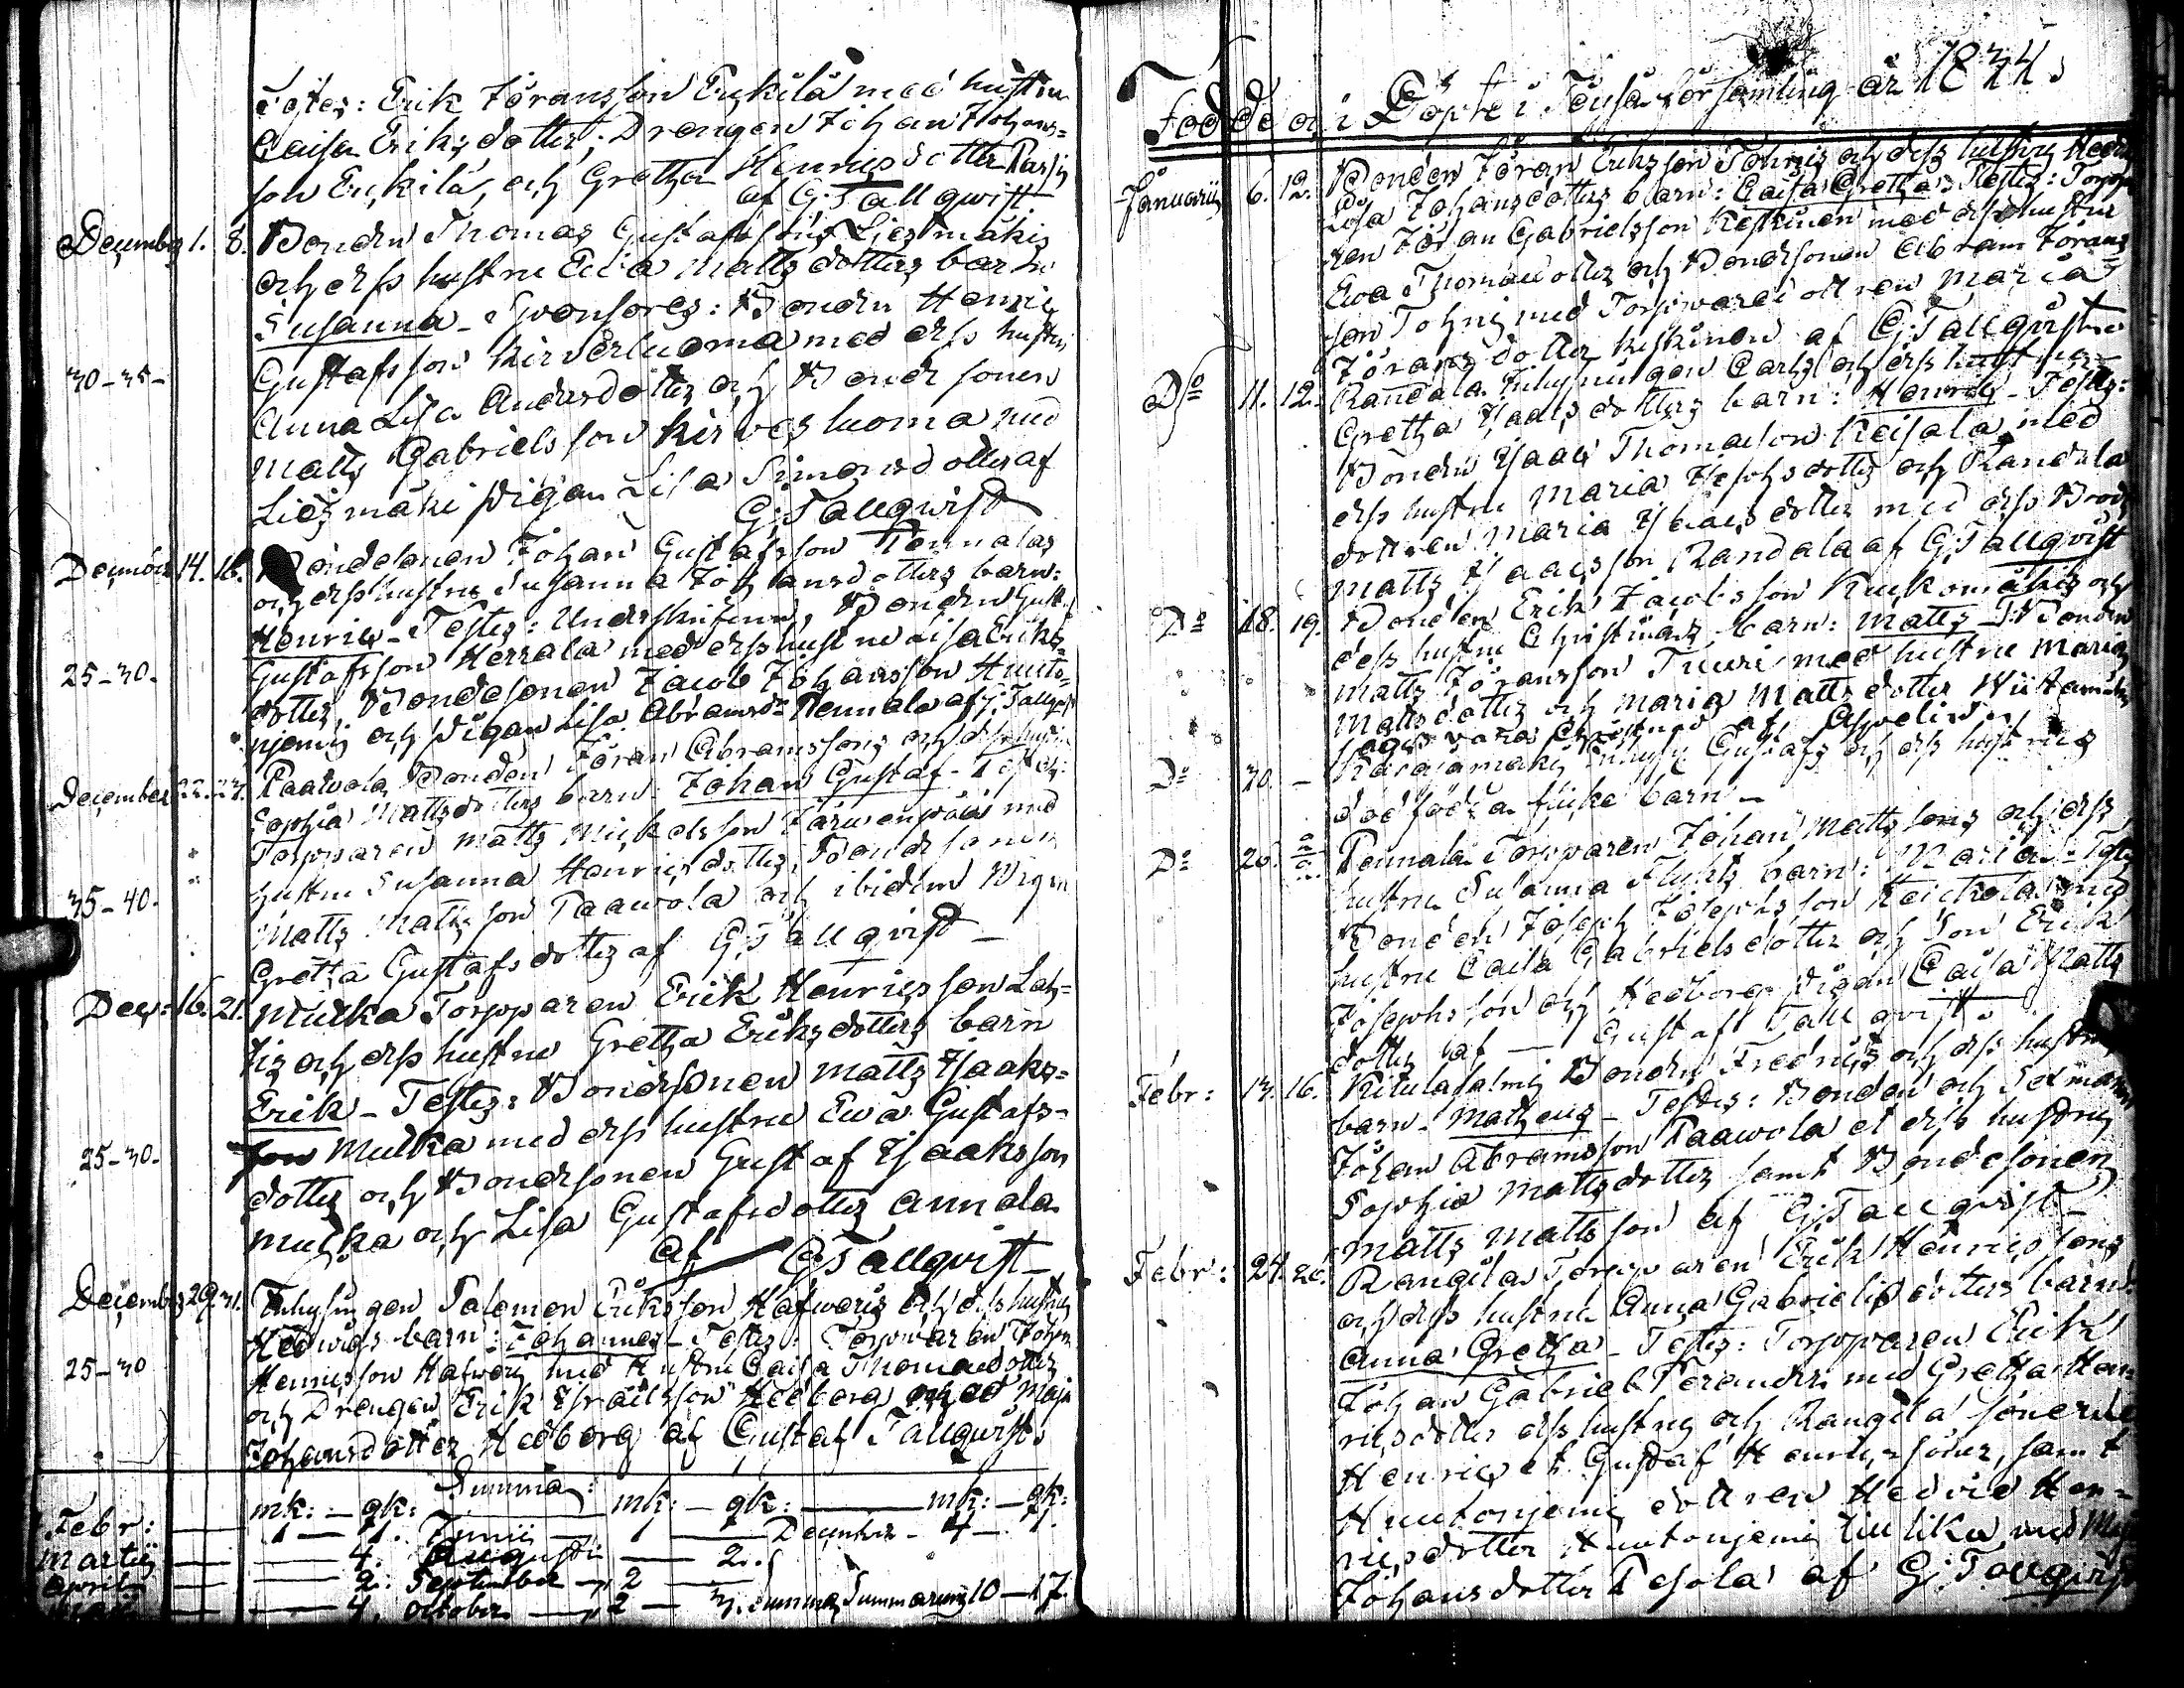 Testes: Erik Jöransson Erkilä med hustru
Caisa Eriksdotter; Drengen Johan Johans=
son Erkilä, och Gretha Henricsdotter
af G: Tallqvist
December 1. 8. Bonden Thomas Gustafssons Liesmäkis
och dess hustru Ewa Mattsdotters barn
Susanna - Sponsores: Bonden Henric
30-35- Gustafsson Kirvesluoma med dess hustru
Anna Lisa Andersdotter och Bondesonen
Matts Gabrielsson Kirvesluoma med
Liesmäki Pigan Lisa Simonsdotter af
G: Tallqvist
14. 16. Bondesonen Johan Gustafsson Rennalas
och dess hustru Susanna Johansdotters barn:
Henric - Testes: Bonden Gust.
25-30. Gustafsson Herrala med dess hustru Lisa Eriks=
dotter, Bondesonen Jacob Johansson Huuto=
njemi och Pigan Lisa Abramsdr Rennala af G. Tallqvist
December 22. 27. Paavola Bonden Jöran Abramssons och dess hustru
Sophia Mattsdotters barn: Johan Gustaf - Testes:
Torpparen Matts Mickelsson Järvenpää med
hustru Susanna Henricsdotter, Bondesonen
35-40. Matts Mattsson Paavola och ibidem Pigan
Gretha Gustafsdotter af G: Tallqvist -
Dec: 16. 21. Mulka Torpparen Erik Henricsson Lah=
tis och dess hustru Gretha Eriksdotters barn
Erik - Testes: Bondesonen Matts Isaaks=
son Mulka med dess hustru Ewa Gustafs-
25-30. dotter och Bondesonen Gustaf Isaaksson
Mulka och Lisa Gustafsdotter Annala
af G Tallqvist -
December 29. 31. Inhysingen Salomon Eriksson Hafveris och dess hustru
Hedwigs barn: Johannes - Testes: Torpparen Johan
25-30 Henricsson Hafveri med Hustru Caisa Thomasdotter
och Drengen Erik Israelsson Hedborg med Maja
Johansdotter Hedborg af Gustaf Tallqvist.
Summa:
mk: - qk: mk: - qk: mk: - qk:
Febr: 1 - 1. Junii 1 December - 4 - 7.
Martii 4. Augusti 2.
April 2. September 2
4. October 2 - 3. Summa Summarum 10 - 17.
Födde och Döpte i Töysä församling år 1834.
Januarii 6. 12. Bonden Jöran Eriksson Tohnis och dess hustru Hedv
Lisa Johansdotters barn: Caisa Gretha. Testes: Torpa
ren Jöran Gabrielsson Keskinen med dess hustru
Ewa Thomasdotter och Bondesonen Abram Jörans
son Tohni med Torparedottren Maria
Jöransdotter Keskinen af G: Tallqvist
Do 11. 12. Randala Inhysingen Carls och dess hustrus
Gretha Isaacsdotters barn: Henric - Testes:
Bonden Isaac Thomasson Keisala med
dess hustru Maria Josephsdotter och Randala
dottren Maria Isaacsdotter med dess Broder
Matts Isaacsson Randala af G: Tallqvist
Do 18. 19. Bonden Erik Jacobsson Kuckomäkis och
dess hustru Christinas barn: Matts - T: Bonden
Matts Jöransson Tuuri med hustru Maria
Mattsdotter och Maria Mattsdotter
af Aspelin
Do 20. - Karajamäki Inhys: Gustafs och dess hustrus
dödfödda flicke barn -
Do 26. Rennala Torpparen Johan Mattssons och dess
hustru Susanna barn: Maria - Test:
Bonden Joseph Josephsson Keickola med
hustru Caisa Gabrielsdotter och Son Erik
Josephsson och Hedborgs Pigan Caisa Matts
dotter af - Gustaf Tallqvist.
Febr: 13. 16. Ritulasalmi Bonden Fredrics och dess hustrus
barn - Matheus - Testes: Bonden och Sexman
Johan Abramsson Paavola et dess hustru
Sophia Mattsdotter samt Bondesonen
Matts Mattsson af G: Tallqvist -
Febr: 24. 26. Rangila Torpparen Erik Henricssons
och dess hustru Anna Gabrielsdotters barn:
Anna Gretha - Testes: Torpparen Erik
Johan Gabriel med Gretha Hen=
ricsdotter dess hustru och Rangila sönerne
Henric et Gustaf Henricssöner, samt
Huutonjemi dottren Hedvig Hen=
ricsdotter Huutonjemi tillika med Maja
Johansdotter Pesola af G: Tallqvist